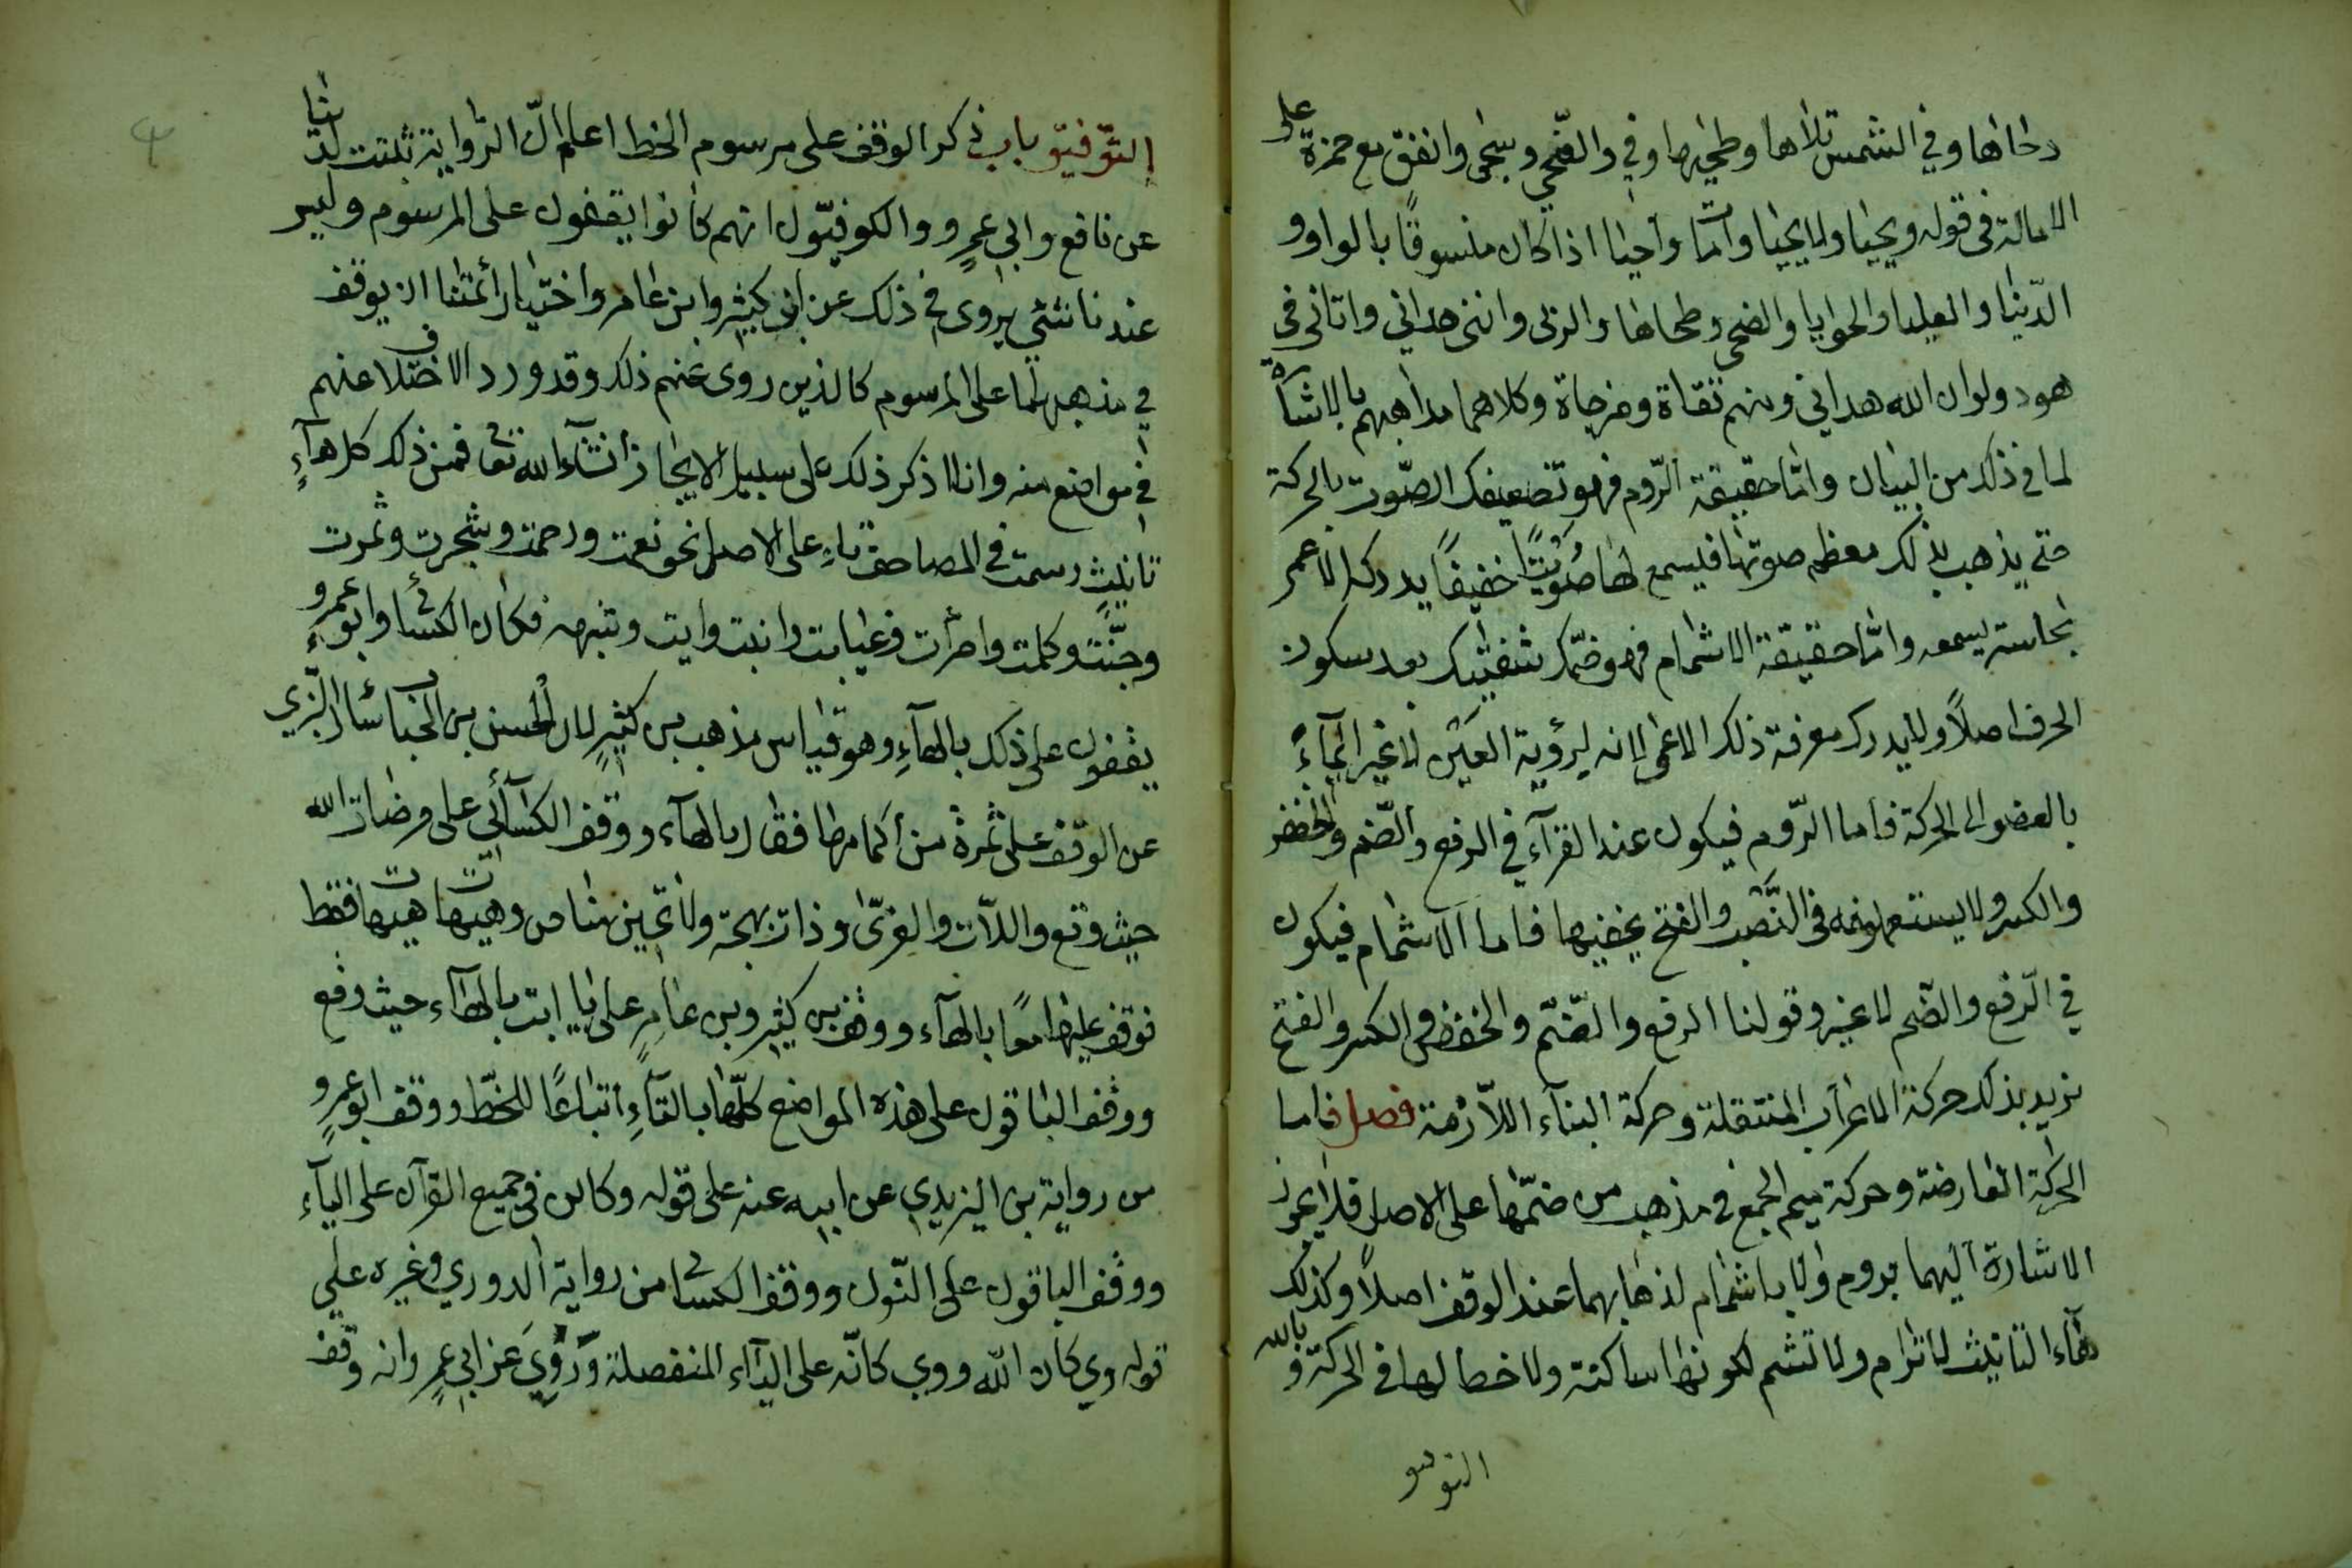 دحاها وفي الشمس تلاها وطحيها وفي والضّحي وسجى واتفق مع حمزة على
الامالة في قوله ويحيا ولا يحيا وامات واحيا اذا كان منسوقًا بالواو و
الدّنيا والعليا والحوايا والضحى وضحاها والربى وانني هداني واتاني في
هود ولو ان الله هداني ومنهم تقاة ومزجاة وكلاهما مذاهبهم بالاشارة
لما في ذلك من البيان وامّا حقيقة الرّوم فهو تضعيفك الصّوت بالحركة
حتى يذهب بذلك معظم صوتها فيسمع لها صُوَيتًا خفيفًا يدركه الاعمى
بحاسة سمعه وامّا حقيقة الاشمام فهو ضمّك شفتيك بعد سكون
الحرف اصلاً ولا يدرك معرفة ذلك الاعمى لانه لرؤية العين لا غير ايمآءً
بالعضو الى الحركة فاما الرّوم فيكون عند القرآء في الرفع والضّم والخفض
والكسر ولا يستعملونه في النَّصب والفتح لخفيها فاما الاشمام فيكون
في الرّفع والضّم لا غير وقولنا الرفع والضّم والخفض والكسر والفتح
نريد بذلك حركة الاعراب المنتقلة وحركة البنآء اللاّزمة فصل فاما
الحركة العارضة وحركة ميم الجمع في مذهب من ضمّها على الاصل فلا يجوز
الاشارة اليهما بروم ولا باشمام لذهابهما عند الوقف اصلاً وكذلك
هآء التانيث لا ترام ولا تشم لكونها ساكنة ولا خطا لها في الحركة وبالله
التوفيق
التّوفيق باب ذكر الوقف على مرسوم الخط اعلم انّ الرّواية ثبتت لدينا
عن نافع وابي عمرٍو والكوفيّون انهم كانوا يقفون على المرسوم وليس
عندنا شئي يروى في ذلك عن ابن كثير وابن عامر واختيار أئمتنا ان يوقف
في مذهبهما على المرسوم كالذين روى عنهم ذلك وقد ورد الاختلاف عنهم
في مواضع منه وانا اذكر ذلك على سبيل الايجاز انشآء الله تعا فمن ذلك كل هآءِ
تانيثٍ رسمت في المصاحف تاءِ على الاصل نحو نعمت ورحمت وشجرت وثمرت
وجنَّت وكلمت وامرأت وغيابت وابنت وايت وشبهه فكان الكسائي وابو عمروٍ
يقفون على ذلك بالهآءِ وهو قياس مذهب بن كثيرٍ لان الحسن بن الحباب سئال البزّي
عن الوقف على ثمرة من أكمامها فقال بالهآء ووقف الكسآئي على مرضات الله
حيث وقع واللاّت والعزّى وذات بهجة ولا تحين مناص وهيهات هيهات فقط
فوقف عليها معًا بالهآء ووقف بن كثير وبن عامِرٍ على يا ابت بالهآء حيث وقع
ووقف الباقون على هذه المواضع كلّها بالتآءِ اتباعًا للخطّ ووقف ابو عمروٍ
من رواية بن اليزيدي عن ابيه عنه على قوله وكاين في جميع القرآن على اليآء
ووقف الباقون على النّون ووقف الكسائي من رواية الدوري وغيره على
قوله وي كان الله ووي كانّه على اليآء المنفصلة وَرُوِيَ عن ابي عمرٍو انه وقف